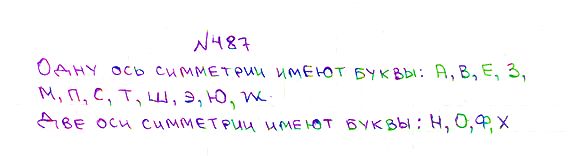 №487
Одну ось симметрии имеют буквы: А, В, Е, З,
М, П, С, Т, Ш, Э, Ю, Ж.
Две оси симметрии имеют буквы: Н, О, Ф, Х